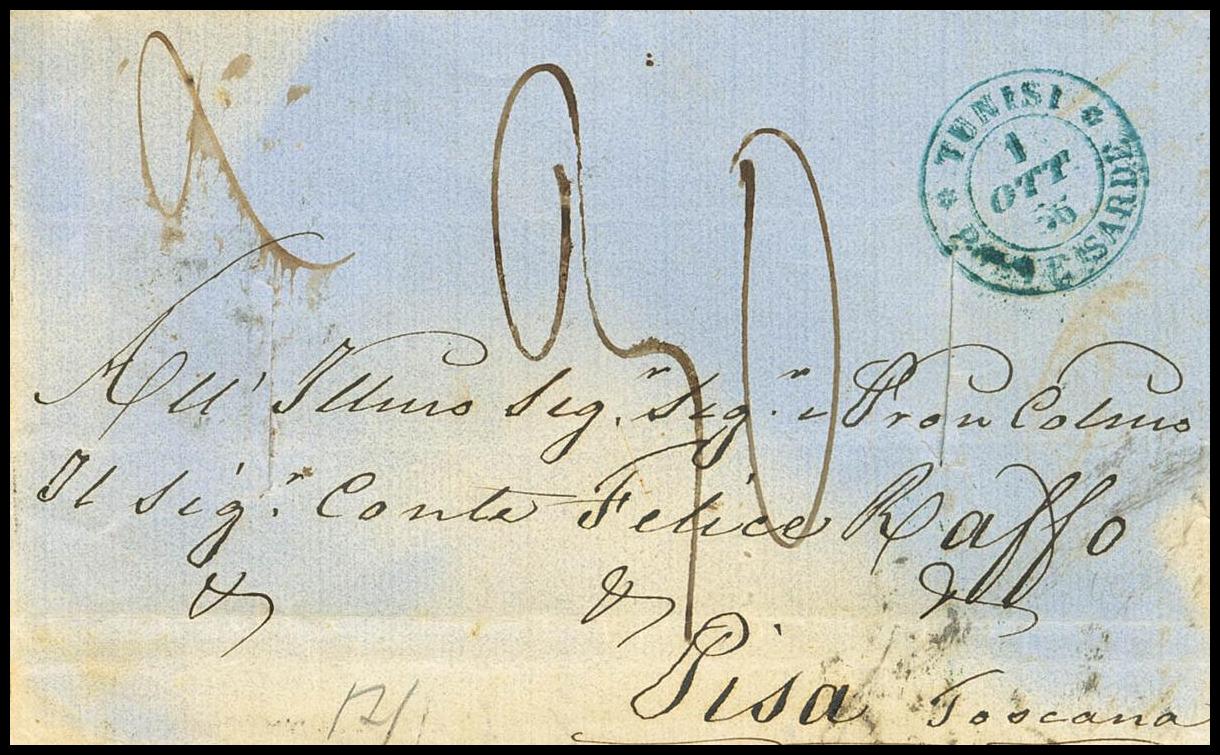 * TUNISI *
POSTE SARDE
1
OTT
56
All' Illmo Sig.r Sig.r e Pron Colmo
Il Sig.r Conte Felice Raffo
& & &
Pisa Toscana